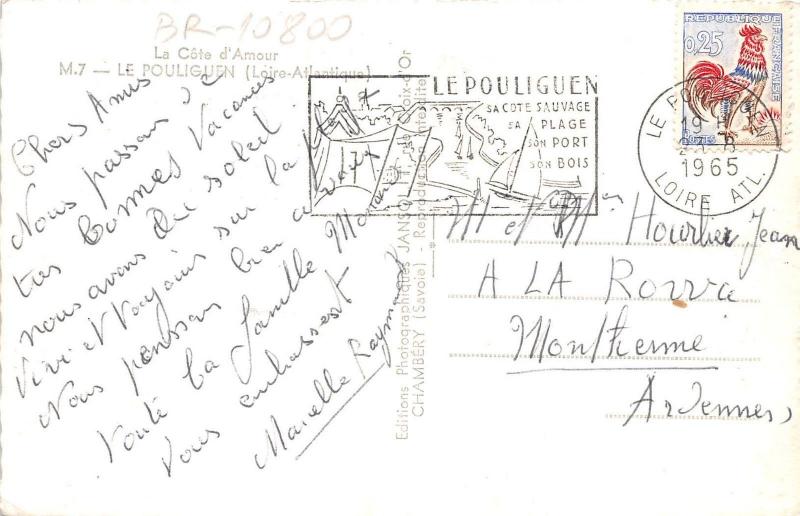 BR-10800
La Côte d'Amour
M.7 — LE POULIGUEN (Loire-Atlantique)
Chers Amis
Nous passons de
tres bonnes Vacances
nous avons du soleil.
Vive et toujours sur la plage
Nous penssons bien a vous
Toute la famille
Vous embrassent
Marcelle Raymond
Editions Photographiques JANSOL, 11, rue Croix-d'Or
CHAMBÉRY (Savoie) - Reproduction interdite
LE POULIGUEN
SA COTE SAUVAGE
SA PLAGE
SON PORT
SON BOIS
REPUBLIQUE FRANÇAISE
0,25
POSTES
LE POULIGUEN
19 H
1965
LOIRE ATL.
M et Mme Hourlier Jean
A LA Rova
Montherme
Ardennes